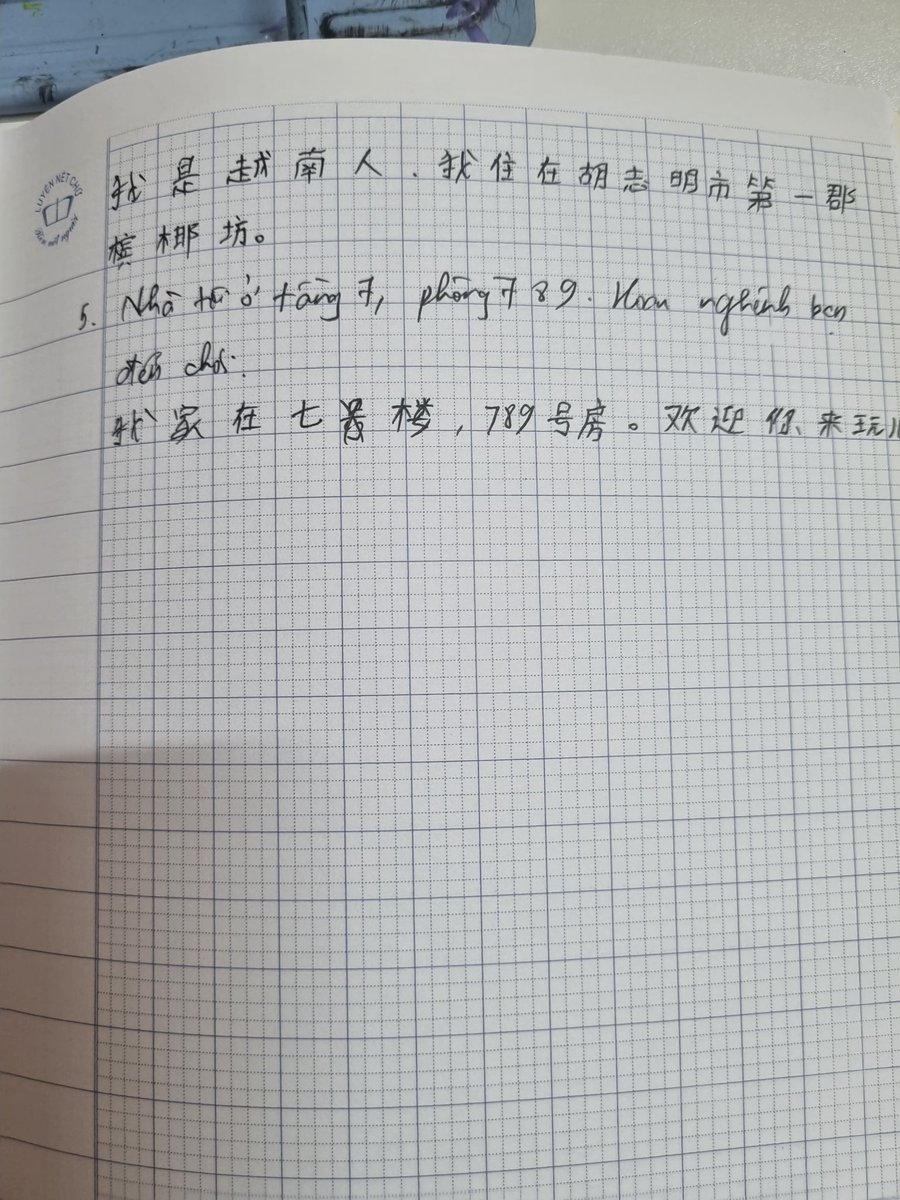 LUYỆN NÉT CHỮ
Rèn nết người
我是越南人.我住在胡志明市第一郡
槟榔坊。
5. Nhà tớ ở tầng 7, phòng 789. Hoan nghênh bạn
đến chơi.
我家在七 楼,789号房。欢迎你来玩儿